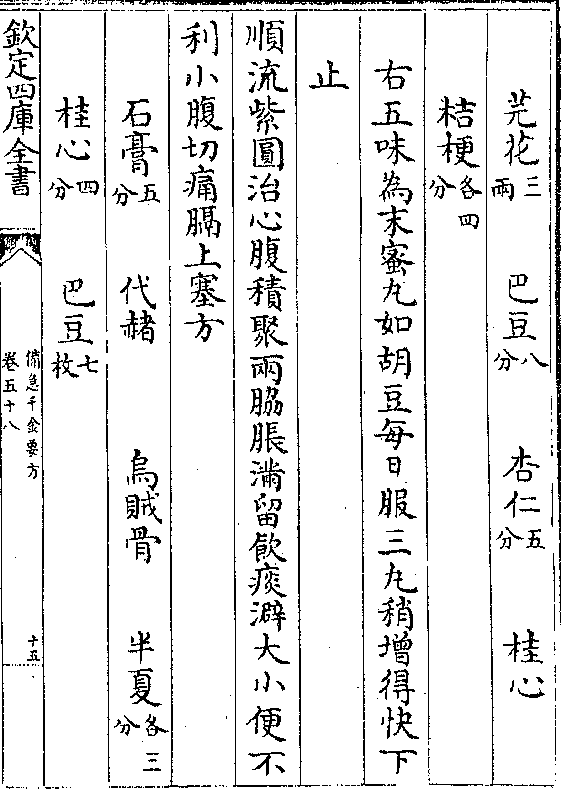 芫花三兩 巴豆八分 杏仁五分 桂心
桔梗各四分
右五味為末蜜丸如胡豆每日服三丸稍增得快下
止
順流紫圓治心腹積聚兩脇脹滿留飲痰澼大小便不
利小腹切痛膈上塞方
石膏五分 代赭 烏賊骨 半夏各三分
桂心四分 巴豆七枚
欽定四庫全書
備急千金要方
卷五十八
十五